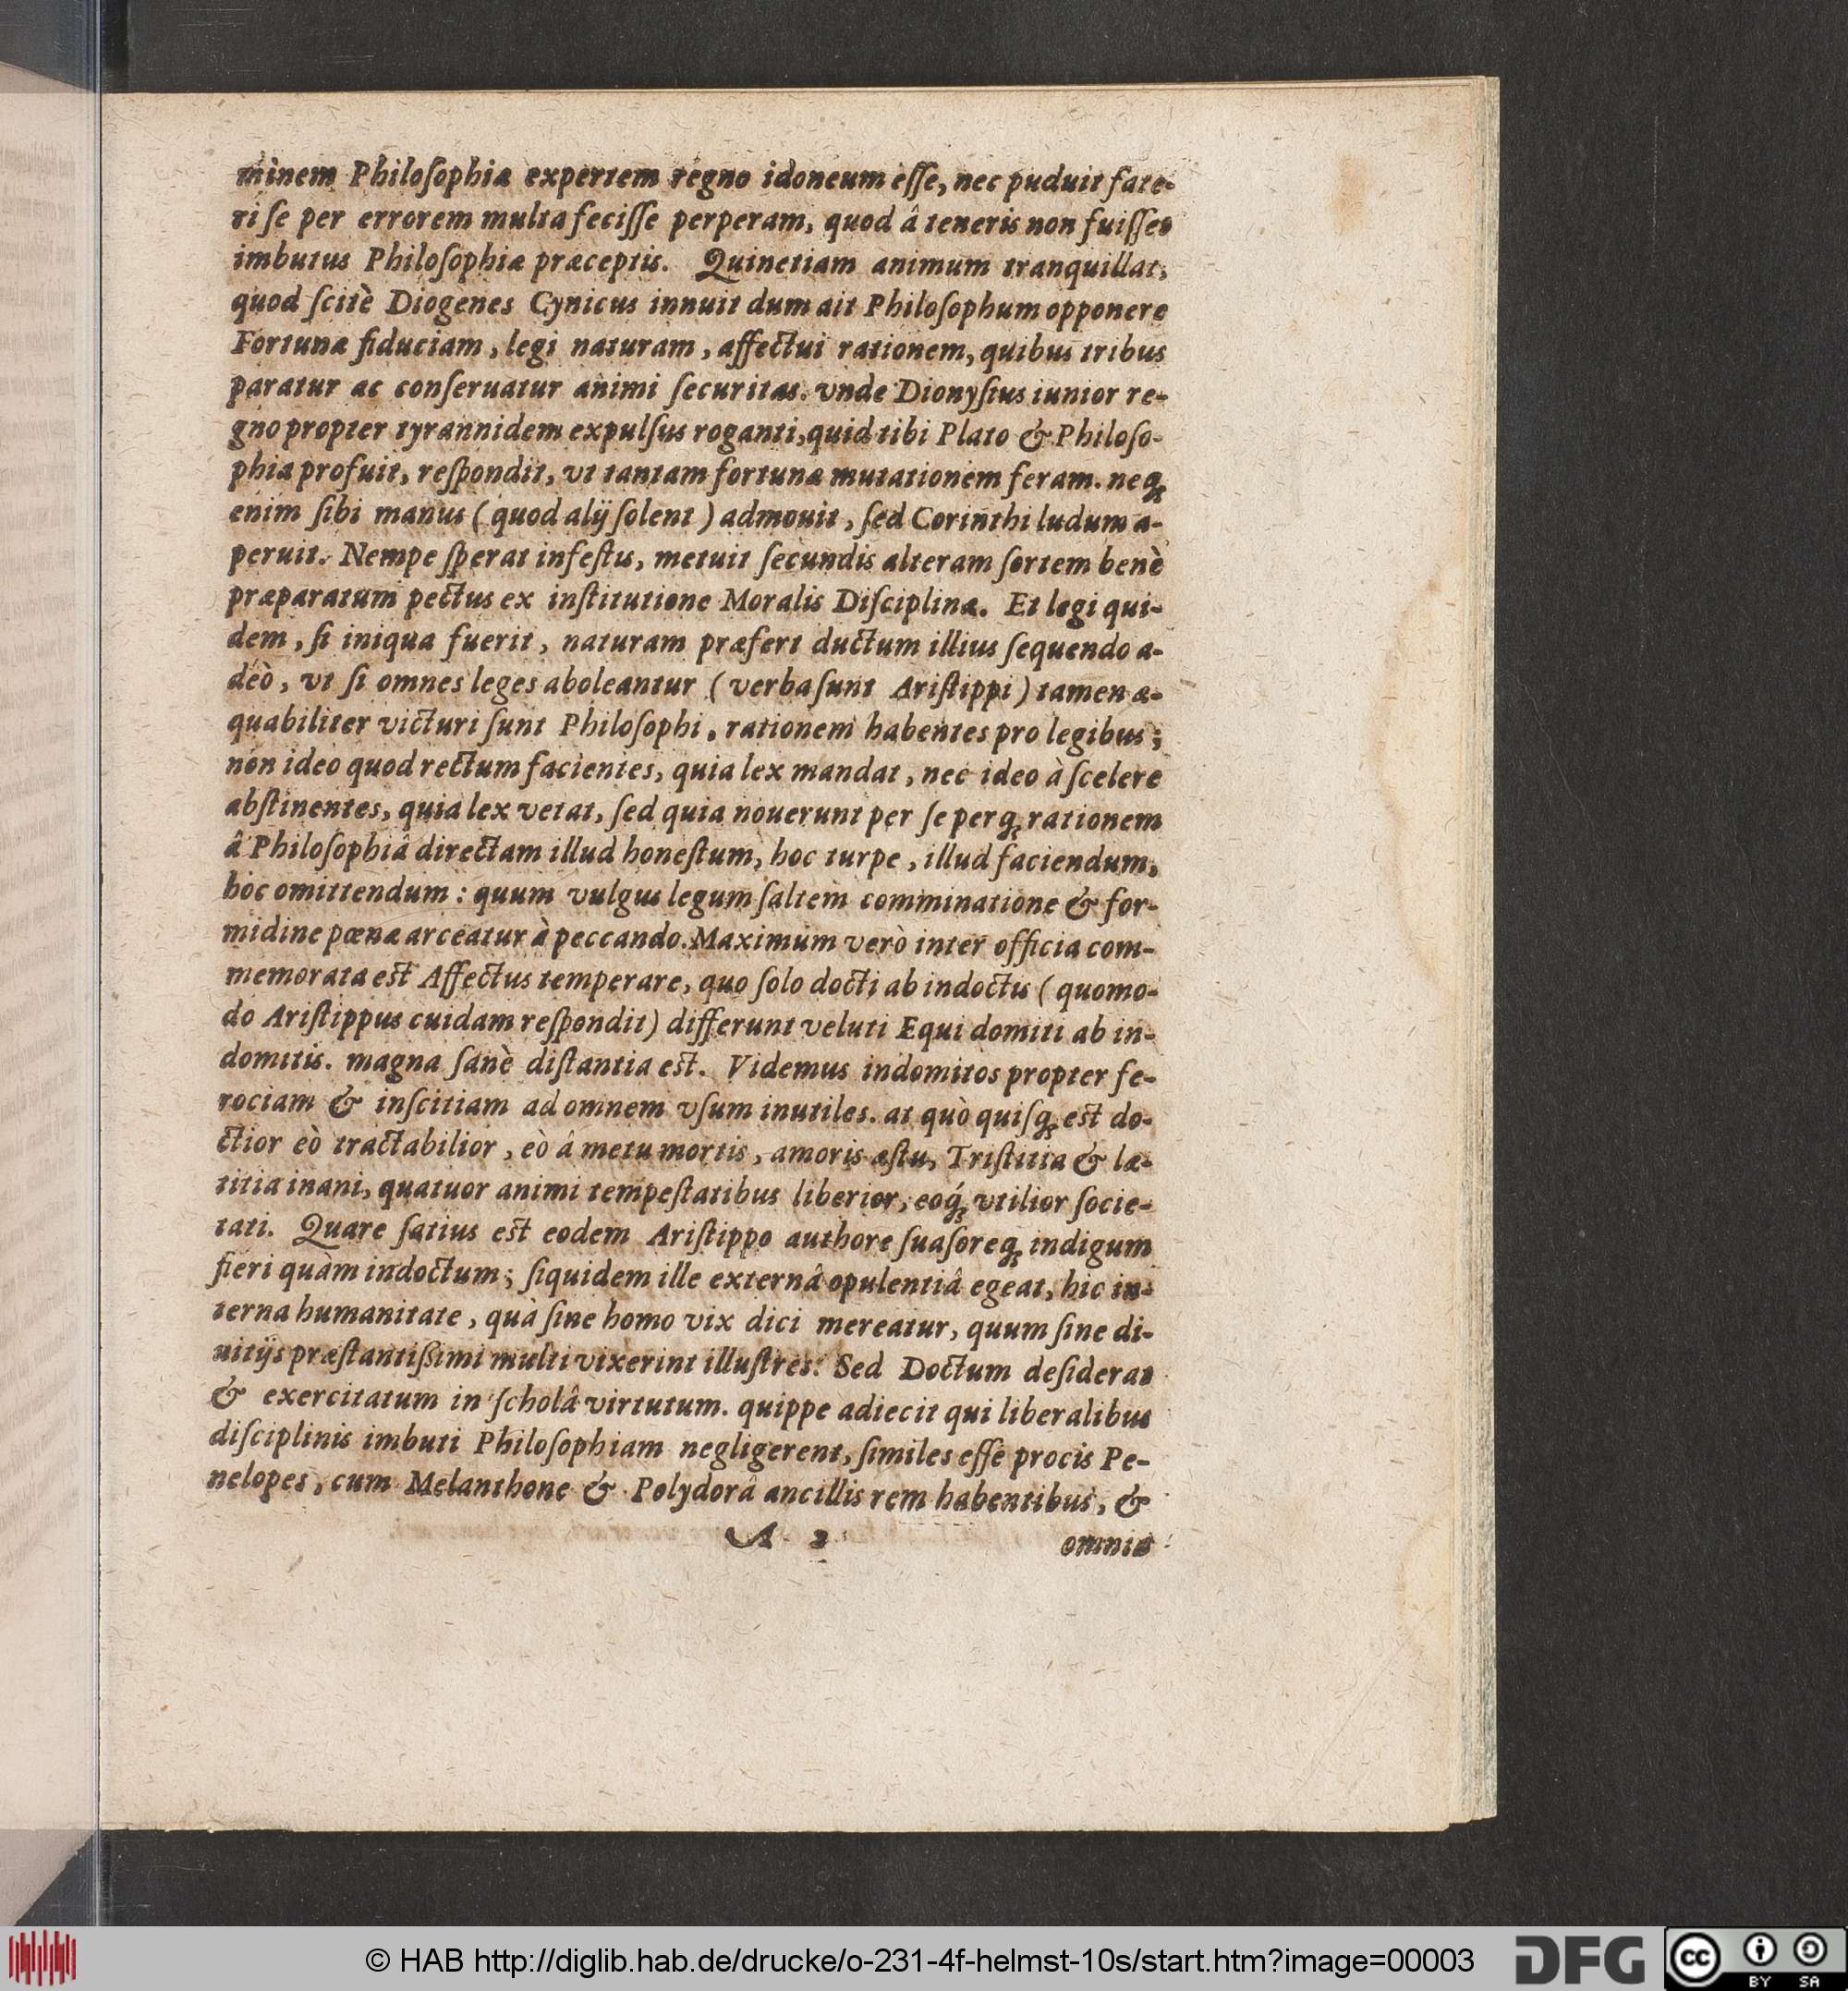 minem Philoſophiæ expertem regno idoneum eſſe, nec puduit fate-
ri ſe per errorem multa feciſſe perperam, quod â teneris non fuiſſet
imbutus Philoſophiæ præceptis. Quinetiam animum tranquillat,
quod ſcitè Diogenes Cynicus innuit dum ait Philoſophum opponere
Fortunæ fiduciam, legi naturam, affectui rationem, quibus tribus
paratur ac conſeruatur animi ſecuritas. vnde Dionyſius iunior re-
gno propter tyrannidem expulſus roganti, quid tibi Plato & Philoſo-
phia profuit, reſpondit, vt tantam fortunæ mutationem feram. neqꝫ
enim ſibi manus (quod alij ſolent) admouit, ſed Corinthi ludum a-
peruit. Nempe ſperat infeſtis, metuit ſecundis alteram ſortem benè
præparatum pectus ex inſtitutione Moralis Diſciplinæ. Et legi qui-
dem, ſi iniqua fuerit, naturam præfert ductum illius ſequendo a-
deò, vt ſi omnes leges aboleantur (verba ſunt Ariſtippi) tamen æ-
quabiliter victuri ſunt Philoſophi, rationem habentes pro legibus;
non ideo quod rectum facientes, quia lex mandat, nec ideo à ſcelere
abſtinentes, quia lex vetat, ſed quia nouerunt per ſe perqꝫ rationem
â Philoſophiâ directam illud honeſtum, hoc turpe, illud faciendum,
hoc omittendum: quum vulgus legum ſaltem comminatione & for-
midine pœnæ arceatur à peccando. Maximum verò inter officia com-
memorata est Affectus temperare, quo ſolo docti ab indoctis (quomo-
do Ariſtippus cuidam reſpondit) differunt veluti Equi domiti ab in-
domitis. magna ſanè diſtantia est. Videmus indomitos propter fe-
rociam & inſcitiam ad omnem vſum inutiles. at quò quiſqꝫ est do-
ctior eò tractabilior, eò â metu mortis, amoris æſtu, Triſtitia & læ-
titia inani, quatuor animi tempeſtatibus liberior, eoqꝫ́ vtilior ſocie-
tati. Quare ſatius est eodem Ariſtippo authore ſuaſoreqꝫ indigum
fieri quàm indoctum; ſiquidem ille externâ opulentiâ egeat, hic in-
terna humanitate, quà ſine homo vix dici mereatur, quum ſine di-
uitijs præſtantißimi multi vixerint illuſtres. Sed Doctum deſiderat
& exercitatum in ſcholâ virtutum. quippe adiecit qui liberalibus
diſciplinis imbuti Philoſophiam negligerent, ſimiles eſſe procis Pe-
nelopes, cum Melanthone & Polydorâ ancillis rem habentibus, &
A 2
omnia
© HAB http://diglib.hab.de/drucke/o-231-4f-helmst-10s/start.htm?image=00003
DFG
cc
BY SA